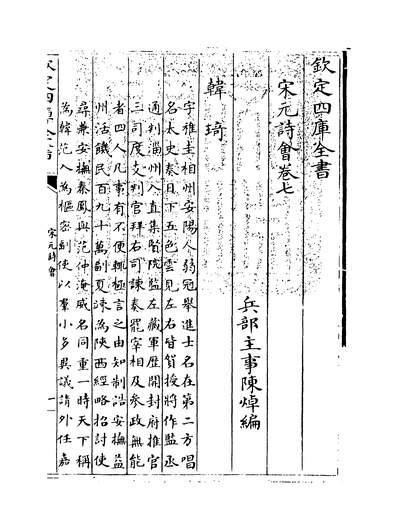 欽定四庫全書
宋元詩會卷七
兵部主事陳焯編
韓琦
字稚圭相州安陽人弱冠舉進士名在第二方唱
名太史奏日下五色雲見左右皆賀授將作監丞
通判淄州入直集賢院監左藏庫歴開封府推官
三司度支判官拜右司諫奏罷宰相及參政無能
者四人凡事有不便輒極言之由知制誥安撫益
州活饑民百九十萬副夏竦為陜西經略招討使
尋兼安撫秦鳳與范仲淹威名同重一時天下稱
為韓范入為樞密副使以羣小多異議請外任嘉
欽定四庫全書
宋元詩會
一